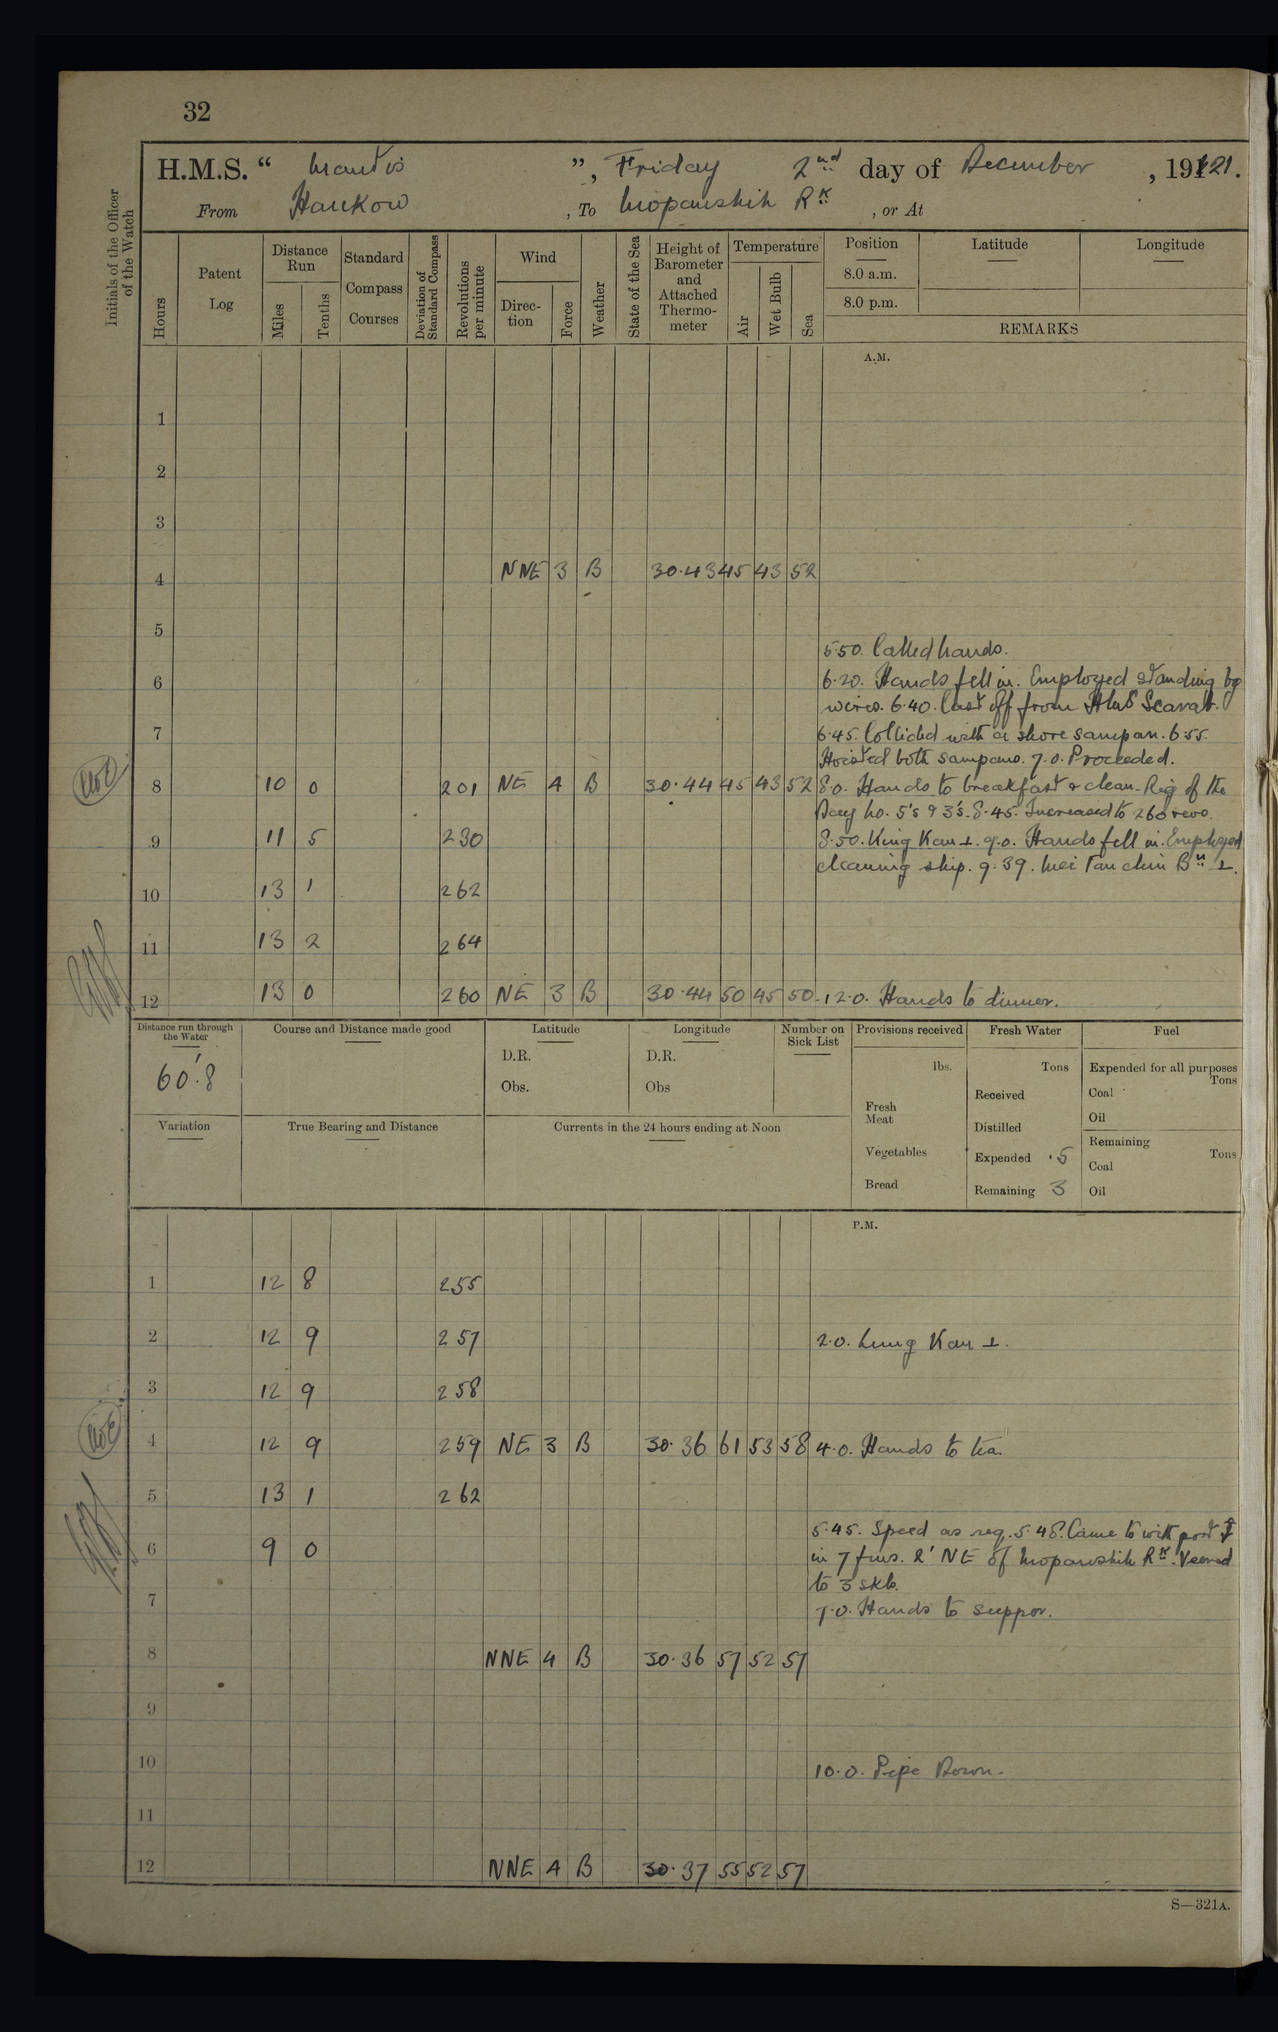 32
H.M.S. “ Mantis ”, Friday 2nd day of December, 1921.
From Hankow, To Mopanshih Rk, or At
Initials of the Officer of the Watch
Hours
Patent Log
Distance Run
Miles
Tenths
Standard Compass Courses
Deviation of Standard Compass
Revolutions per minute
Wind
Direction
Force
Weather
State of the Sea
Height of Barometer and Attached Thermometer
Temperature
Air
Wet Bulb
Sea
Position
8.0 a.m.
8.0 p.m.
Latitude
Longitude
REMARKS
A.M.
1
2
3
4 NNE 3 B 30.43 45 43 52
5
5.50. Called hands.
6 6.20. Hands fell in. Employed standing by
wires. 6.40. Cast off from HMS Scarab.
7 6.45. Collided with a shore sampan. 6.55.
Hoisted both sampans. 7.0. Proceeded.
8 10 0 201 NE 4 B 30.44 45 43 52 8.0. Hands to breakfast & clean. Rig of the
Day No. 5's & 3's. 8.45. Increased to 260 revs.
9 11 5 230 8.50. King Kau ⊥. 9.0. Hands fell in. Employed
cleaning ship. 9.39. Wei Tau chin Bn ⊥.
10 13 1 262
11 13 2 264
12 13 0 260 NE 3 B 30.44 50 45 50 12.0. Hands to dinner.
Distance run through the Water
60'.8
Course and Distance made good
Latitude
D.R.
Obs.
Longitude
D.R.
Obs
Number on Sick List
Provisions received
lbs.
Fresh Meat
Vegetables
Bread
Fresh Water
Tons
Received
Distilled
Expended .5
Remaining 3
Fuel
Expended for all purposes
Tons
Coal
Oil
Remaining
Tons
Coal
Oil
Variation
True Bearing and Distance
Currents in the 24 hours ending at Noon
P.M.
1 12 8 255
2 12 9 257 2.0. Lung Kau ⊥.
3 12 9 258
4 12 9 259 NE 3 B 30.36 61 53 58 4.0. Hands to tea.
5 13 1 262
5.45. Speed as req. 5.48. Came to with port ⚓
6 9 0 in 7 fms. 2' NE of Mopanshih Rk. Veered
to 3 skls.
7 7.0. Hands to supper.
8 NNE 4 B 30.36 57 52 57
9
10 10.0. Pipe Down.
11
12 NNE 4 B 30.37 55 52 57
S—321A.